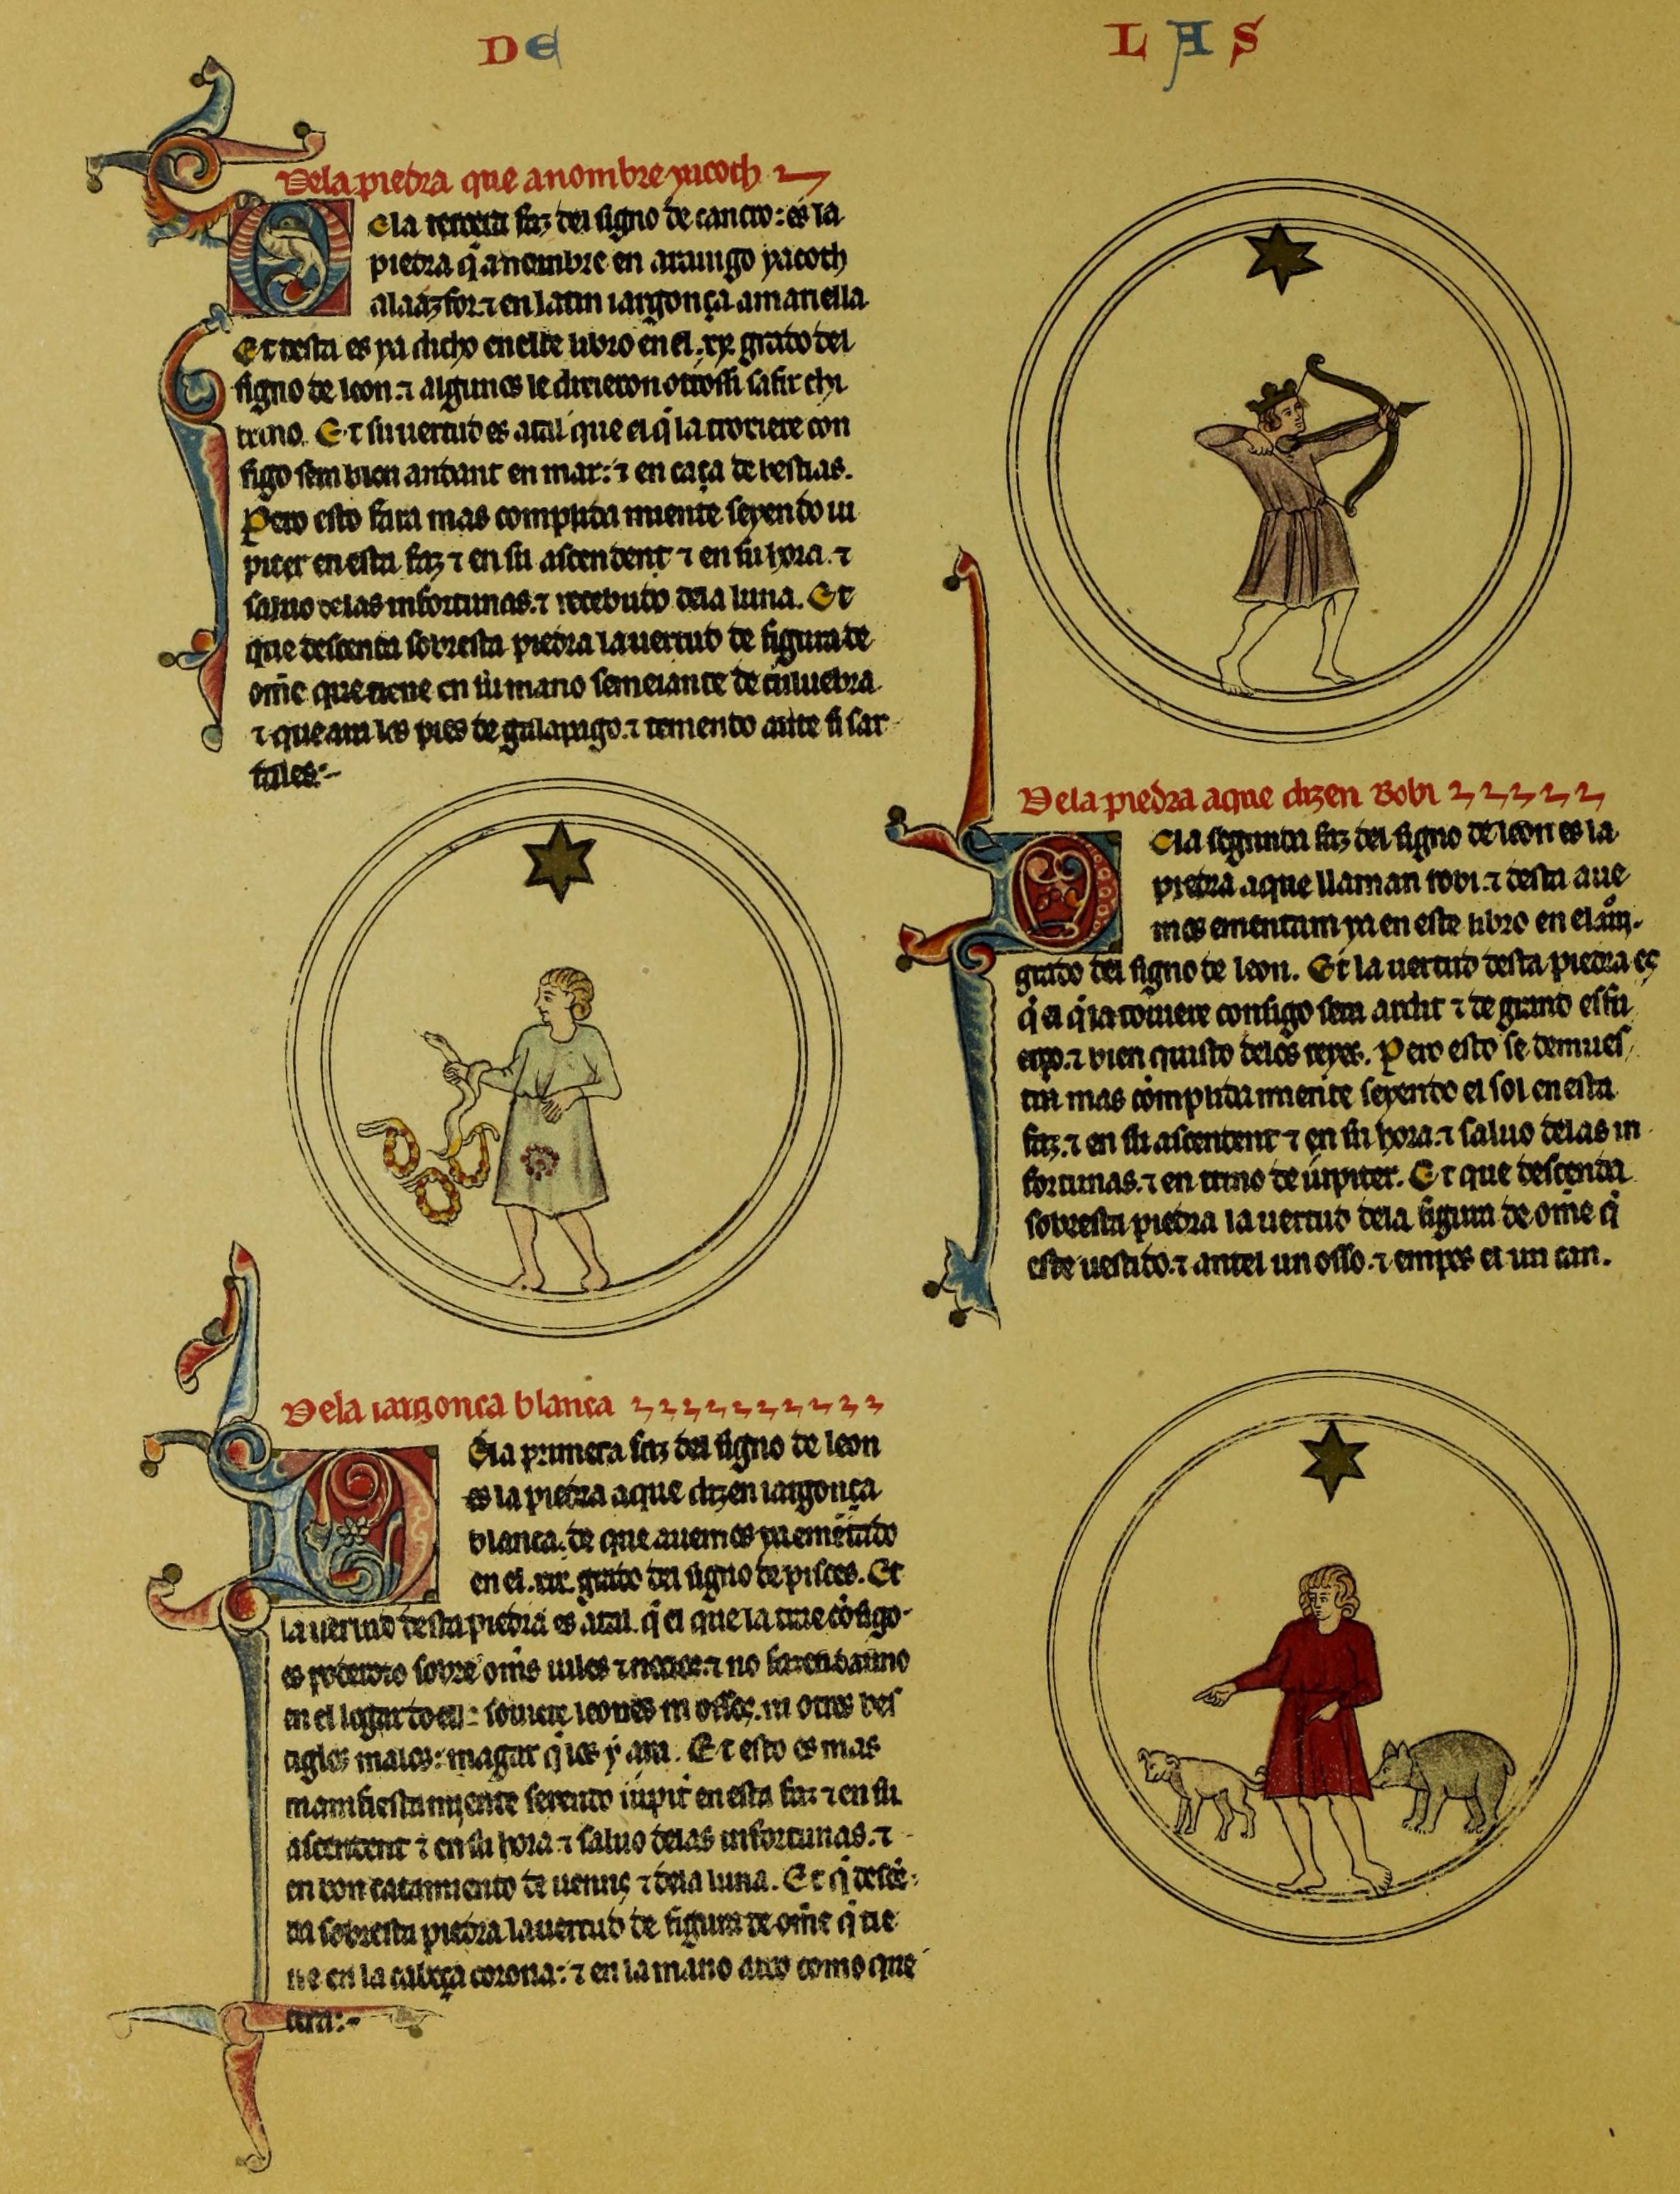 DE LAS
Dela piedra que a nombre yacoth
De la tercera faz del signo de cancro: es la
piedra q̃ a nombre en arauigo yacoth
alaazfor. ⁊ en latin iargonça amariella
Et desta es ya dicho en este libro en el .xx. grado del
signo de leon. ⁊ algunos le dixieron otrossi safir
trino. Et su uertud es atal que el q̃ la troxiere con
sigo sera bien andant en mar: ⁊ en caça de bestias.
Pero esto fara mas complida miente seyendo iu
piter en esta faz ⁊ en su ascendent ⁊ en su hora. ⁊
saluo delas infortunas. ⁊ recebudo dela luna. Et
que descenda sobresta piedra la uertud de figura de
om̃e que tiene en su mano semeiante de culuebra
⁊ que aia los pies de galapago. ⁊ teniendo ante si sar
tales:-
Dela iargonça blanca
Dela primera faz del signo de leon
es la piedra a que dizen iargonça
blanca. de que auemos ya emẽtado
en el .xix. grado del signo de pisces. Et
la uertud desta piedra es atal. q̃ el que la trae cõsigo
es poderoso sobre om̃s uiles ⁊ ⁊ no fazen danno
en el logar do ella souiere leones ni ossos. ni otros bes
tiglos malos: magar q̃ los y aia. Et esto es mas
manifiesta miente seyendo iupit̃ en esta faz ⁊ en su
ascendent ⁊ en su hora ⁊ saluo delas infortunas. ⁊
en bon catamiento de uenus ⁊ dela luna. Et q̃ descẽ
da sobresta piedra la uertud de figura de om̃e q̃ tie
ne en la cabeça corona: ⁊ en la mano arco como que
tira:-
Dela piedra a que dizen Robi
Dela segunda faz del signo de leon es la
piedra a que llaman robi. ⁊ desta aue
mos ementam ya en este libro en el
grado del signo de leon. Et la uertud desta piedra es
q̃ el q̃ la touiere consigo sera ardit ⁊ de grand esfu
erço. ⁊ bien quisto delos reyes. Pero esto se demues
tra mas complida miente seyendo el sol en esta
faz. ⁊ en su ascendent ⁊ en su hora. ⁊ saluo delas in
fortunas. ⁊ en trino de iupiter. Et que descenda
sobresta piedra la uertud dela figura de om̃e q̃
este uestido. ⁊ antel un osso. ⁊ empos el un can.